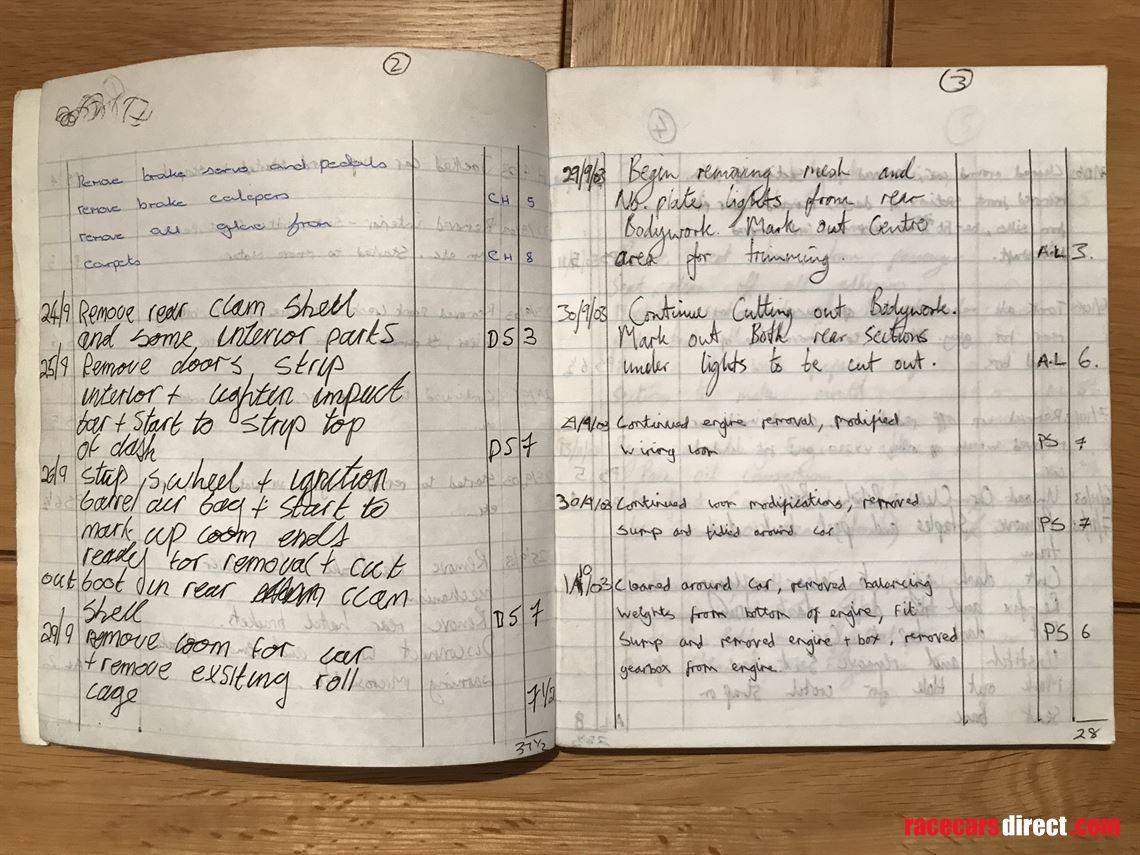 2
Remove brake servo and pedals
remove brake calapers CH 5
remove all glue from
carpets CH 8
24/9 Remove rear clam shell
and some interior parts DS 3
25/9 Remove doors strip
interior + lighten impact
bar + start to strip top
of dash DS 7
26/9 strip s,wheel + ignition
barrel air bag + start to
mark up loom ends
ready for removal + cut
out boot in rear clam
shell DS 7
29/9 remove loom for car
+ remove exsiting roll
cage 7 1/2
37 1/2
3
29/9/03 Begin removing mesh and
No. plate lights from rear
Bodywork. Mark out Centre
area for trimming. A.L 3.
30/9/03 Continue Cutting out Bodywork.
Mark out Both rear sections
under lights to be cut out. A.L 6.
29/9/03 Continued engine removal, modified
wiring loom PS 7
30/9/03 Continued loom modifications, removed
Sump and tidied around car PS 7
1/10/03 Cleared around car, removed balancing
weights from bottom of engine, fit
Sump and removed engine + box, removed PS 6
gearbox from engine.
28
racecarsdirect.com